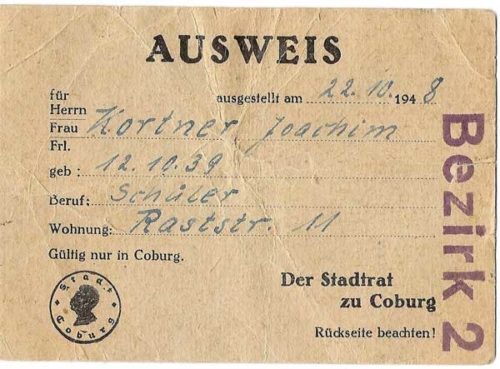 AUSWEIS
für ausgestellt am 22.10.1948
Herrn
Frau Kortner Joachim
Frl.
geb: 12.10.39
Beruf: Schüler
Wohnung: Raststr. 11
Gültig nur in Coburg.
Stadt Coburg
Der Stadtrat
zu Coburg
Rückseite beachten!
Bezirk 2